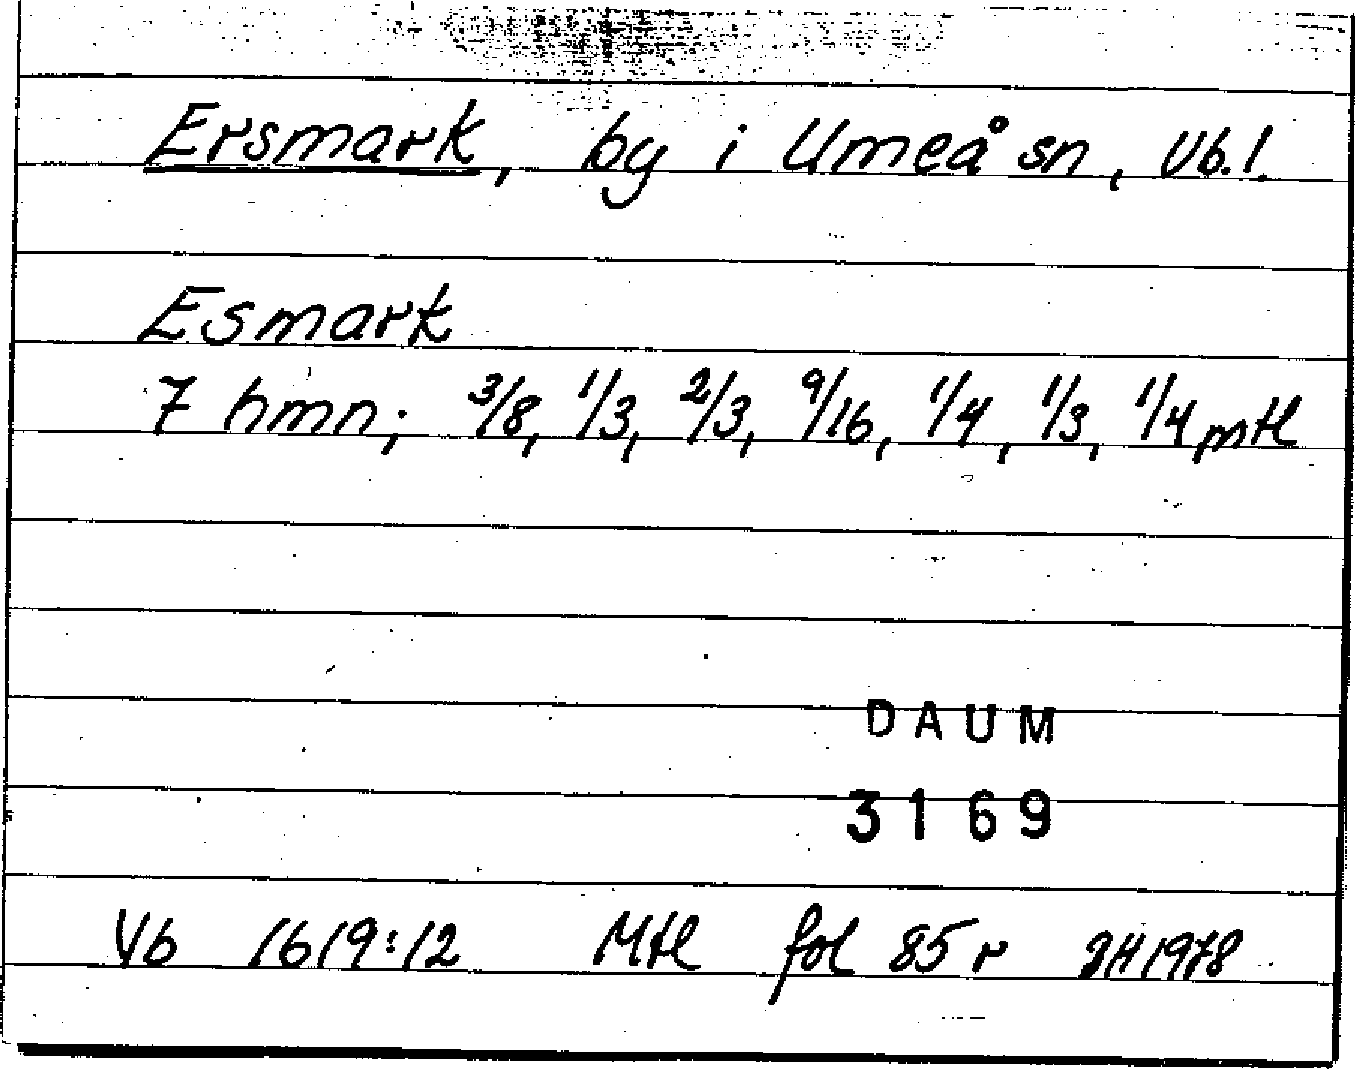 Ersmark, by i Umeå sn, Vb.l.
Esmark
7 hmn; 3/8, 1/3, 2/3, 9/16, 1/4, 1/3, 1/4 mtl
DAUM
3169
Vb 1619:12 Mtl fol 85 r 1978